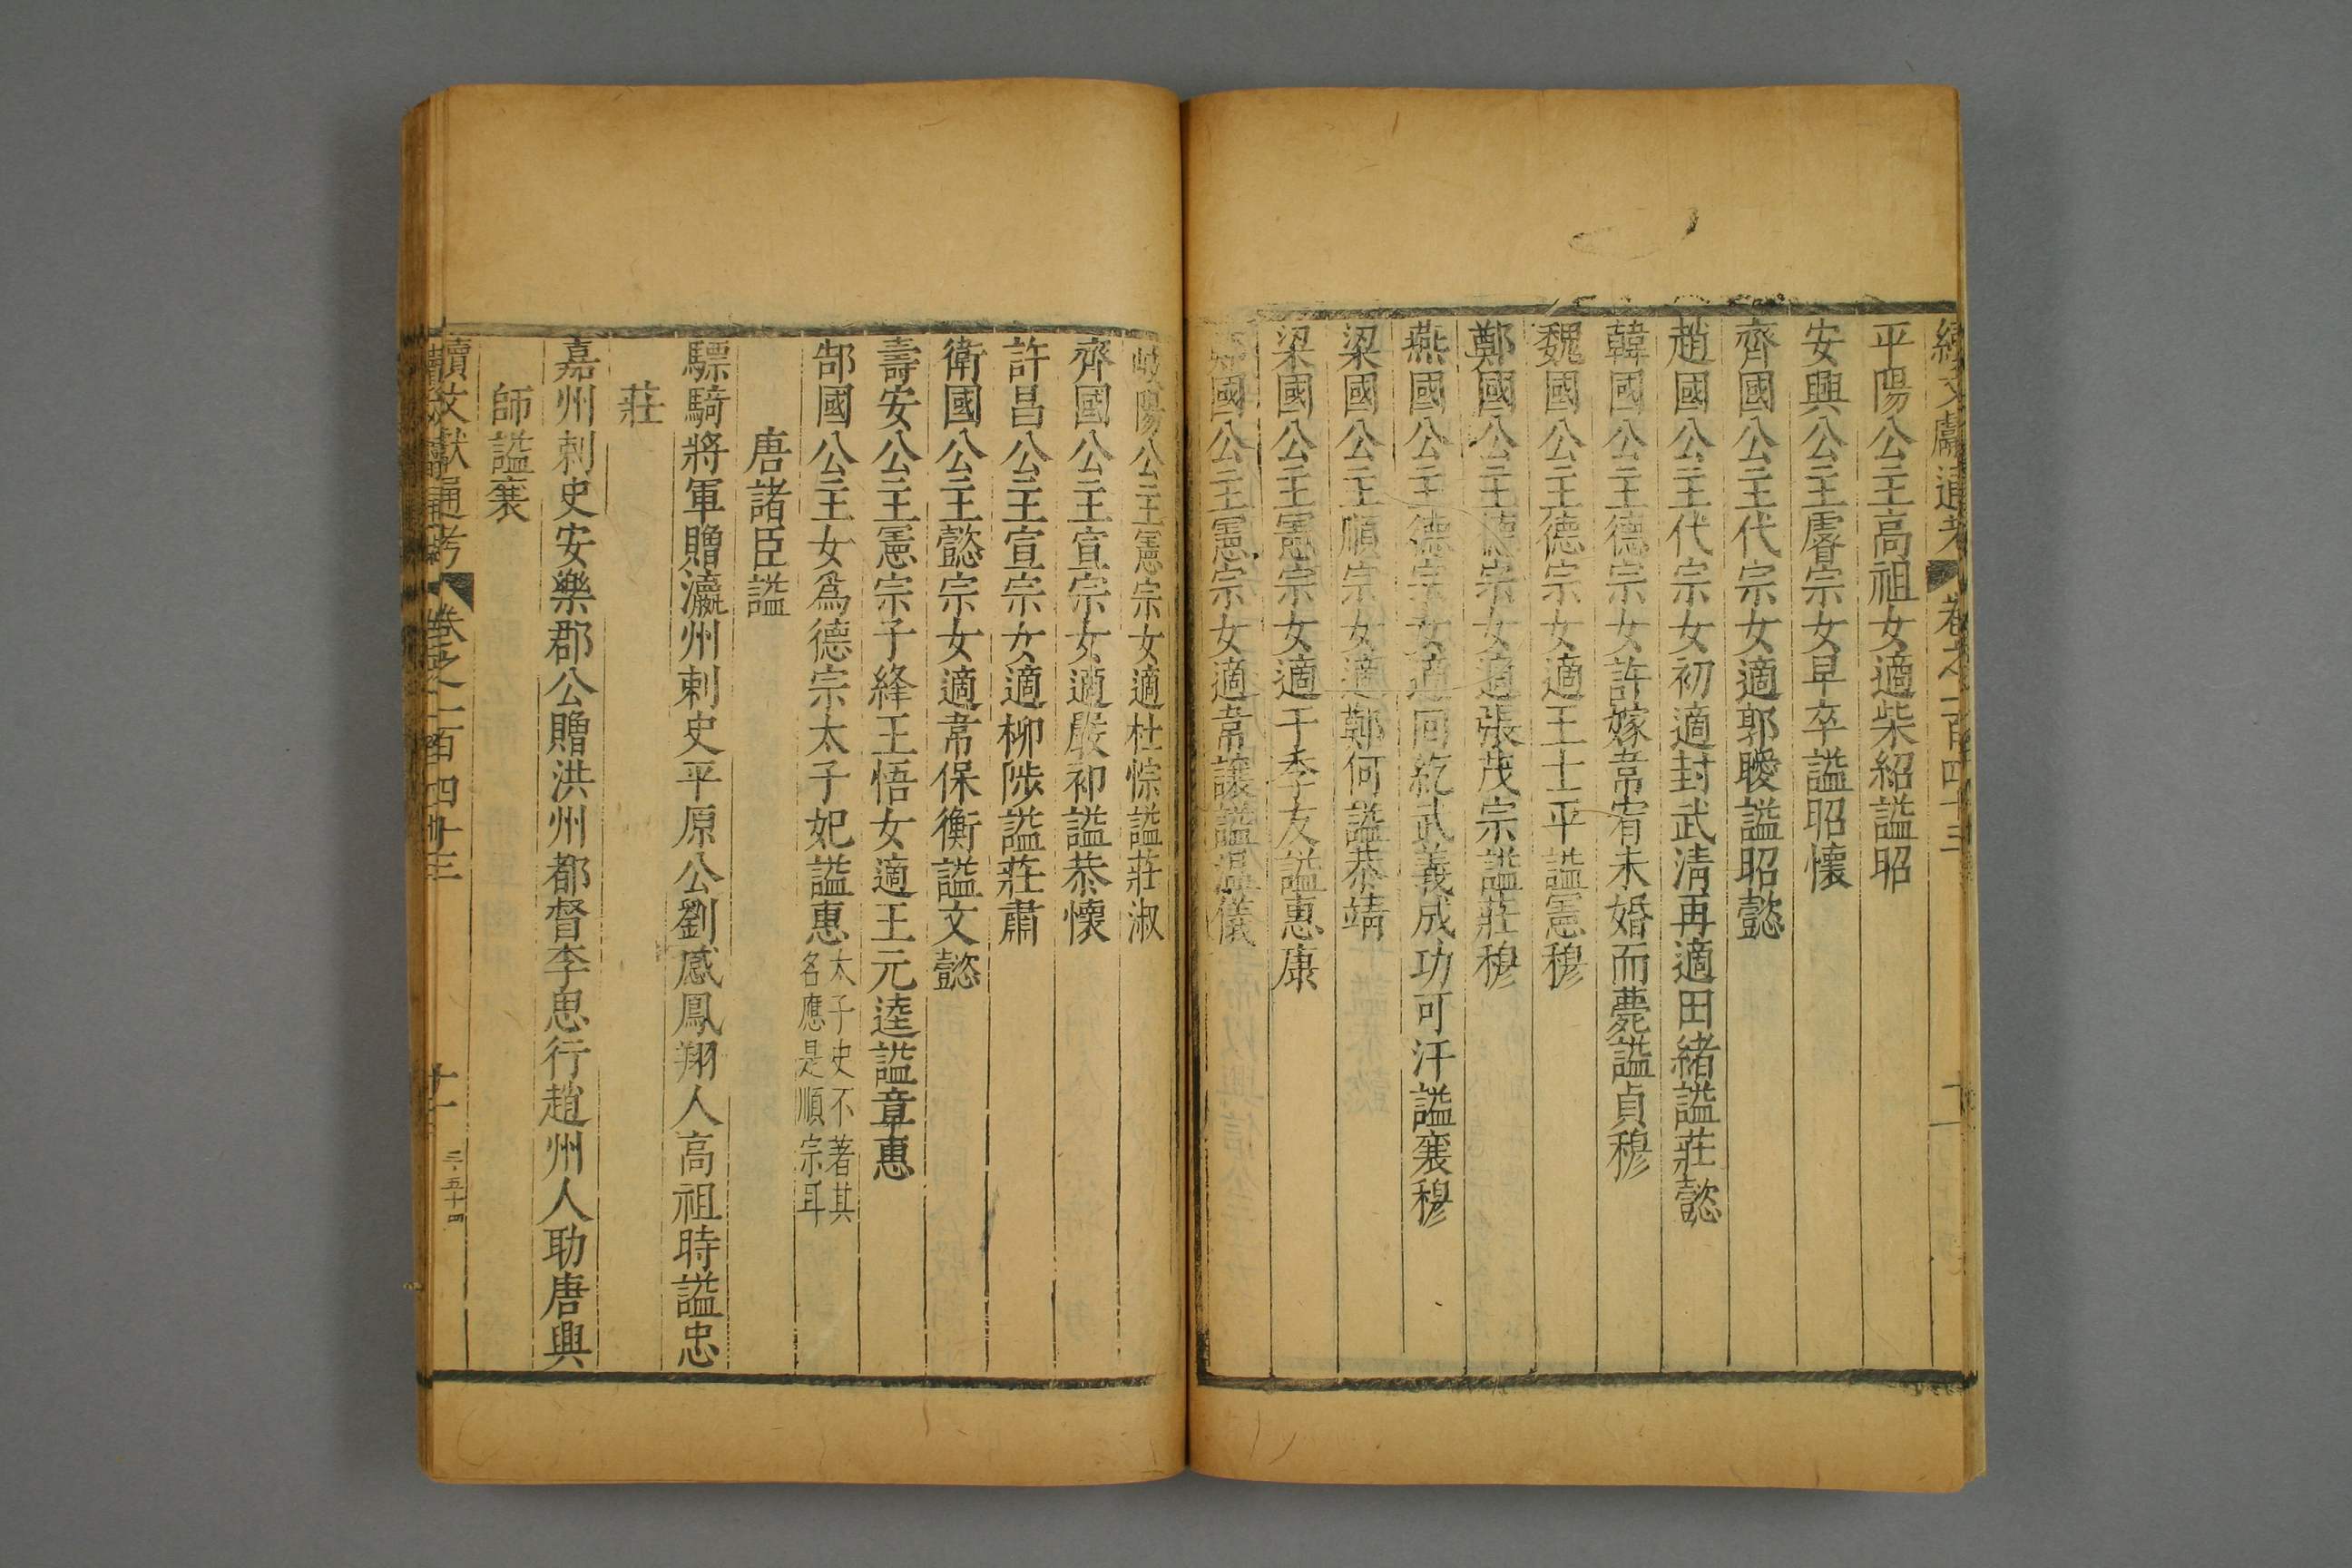 續文獻通考 卷之一百四十三 十一
平陽公主高祖女適柴紹謚昭
安興公主睿宗女早卒謚昭懷
齊國公主代宗女適郭曖謚昭懿
趙國公主代宗女初適封武清再適田緒謚莊懿
韓國公主德宗女許嫁韋宥未婚而薨謚貞穆
魏國公主德宗女適王士平謚憲穆
鄭國公主德宗女適張茂宗謚莊穆
燕國公主德宗女適回紇武義成功可汗謚襄穆
梁國公主順宗女適鄭何謚恭靖
梁國公主憲宗女適于季友謚惠康
國公主憲宗女適韋讓謚溫儀
岐陽公主憲宗女適杜悰謚莊淑
齊國公主宣宗女適嚴祁謚恭懷
許昌公主宣宗女適柳陟謚莊肅
衛國公主懿宗女適韋保衡謚文懿
壽安公主憲宗子絳王悟女適王元逵謚章惠
郜國公主女為德宗太子妃謚惠太子史不著其
名應是順宗耳
唐諸臣謚
驃騎將軍贈瀛州刺史平原公劉感鳳翔人高祖時謚忠
莊
嘉州刺史安樂郡公贈洪州都督李思行趙州人助唐興
師謚襄
續文獻通考 卷之一百四十三 十一 三五十四